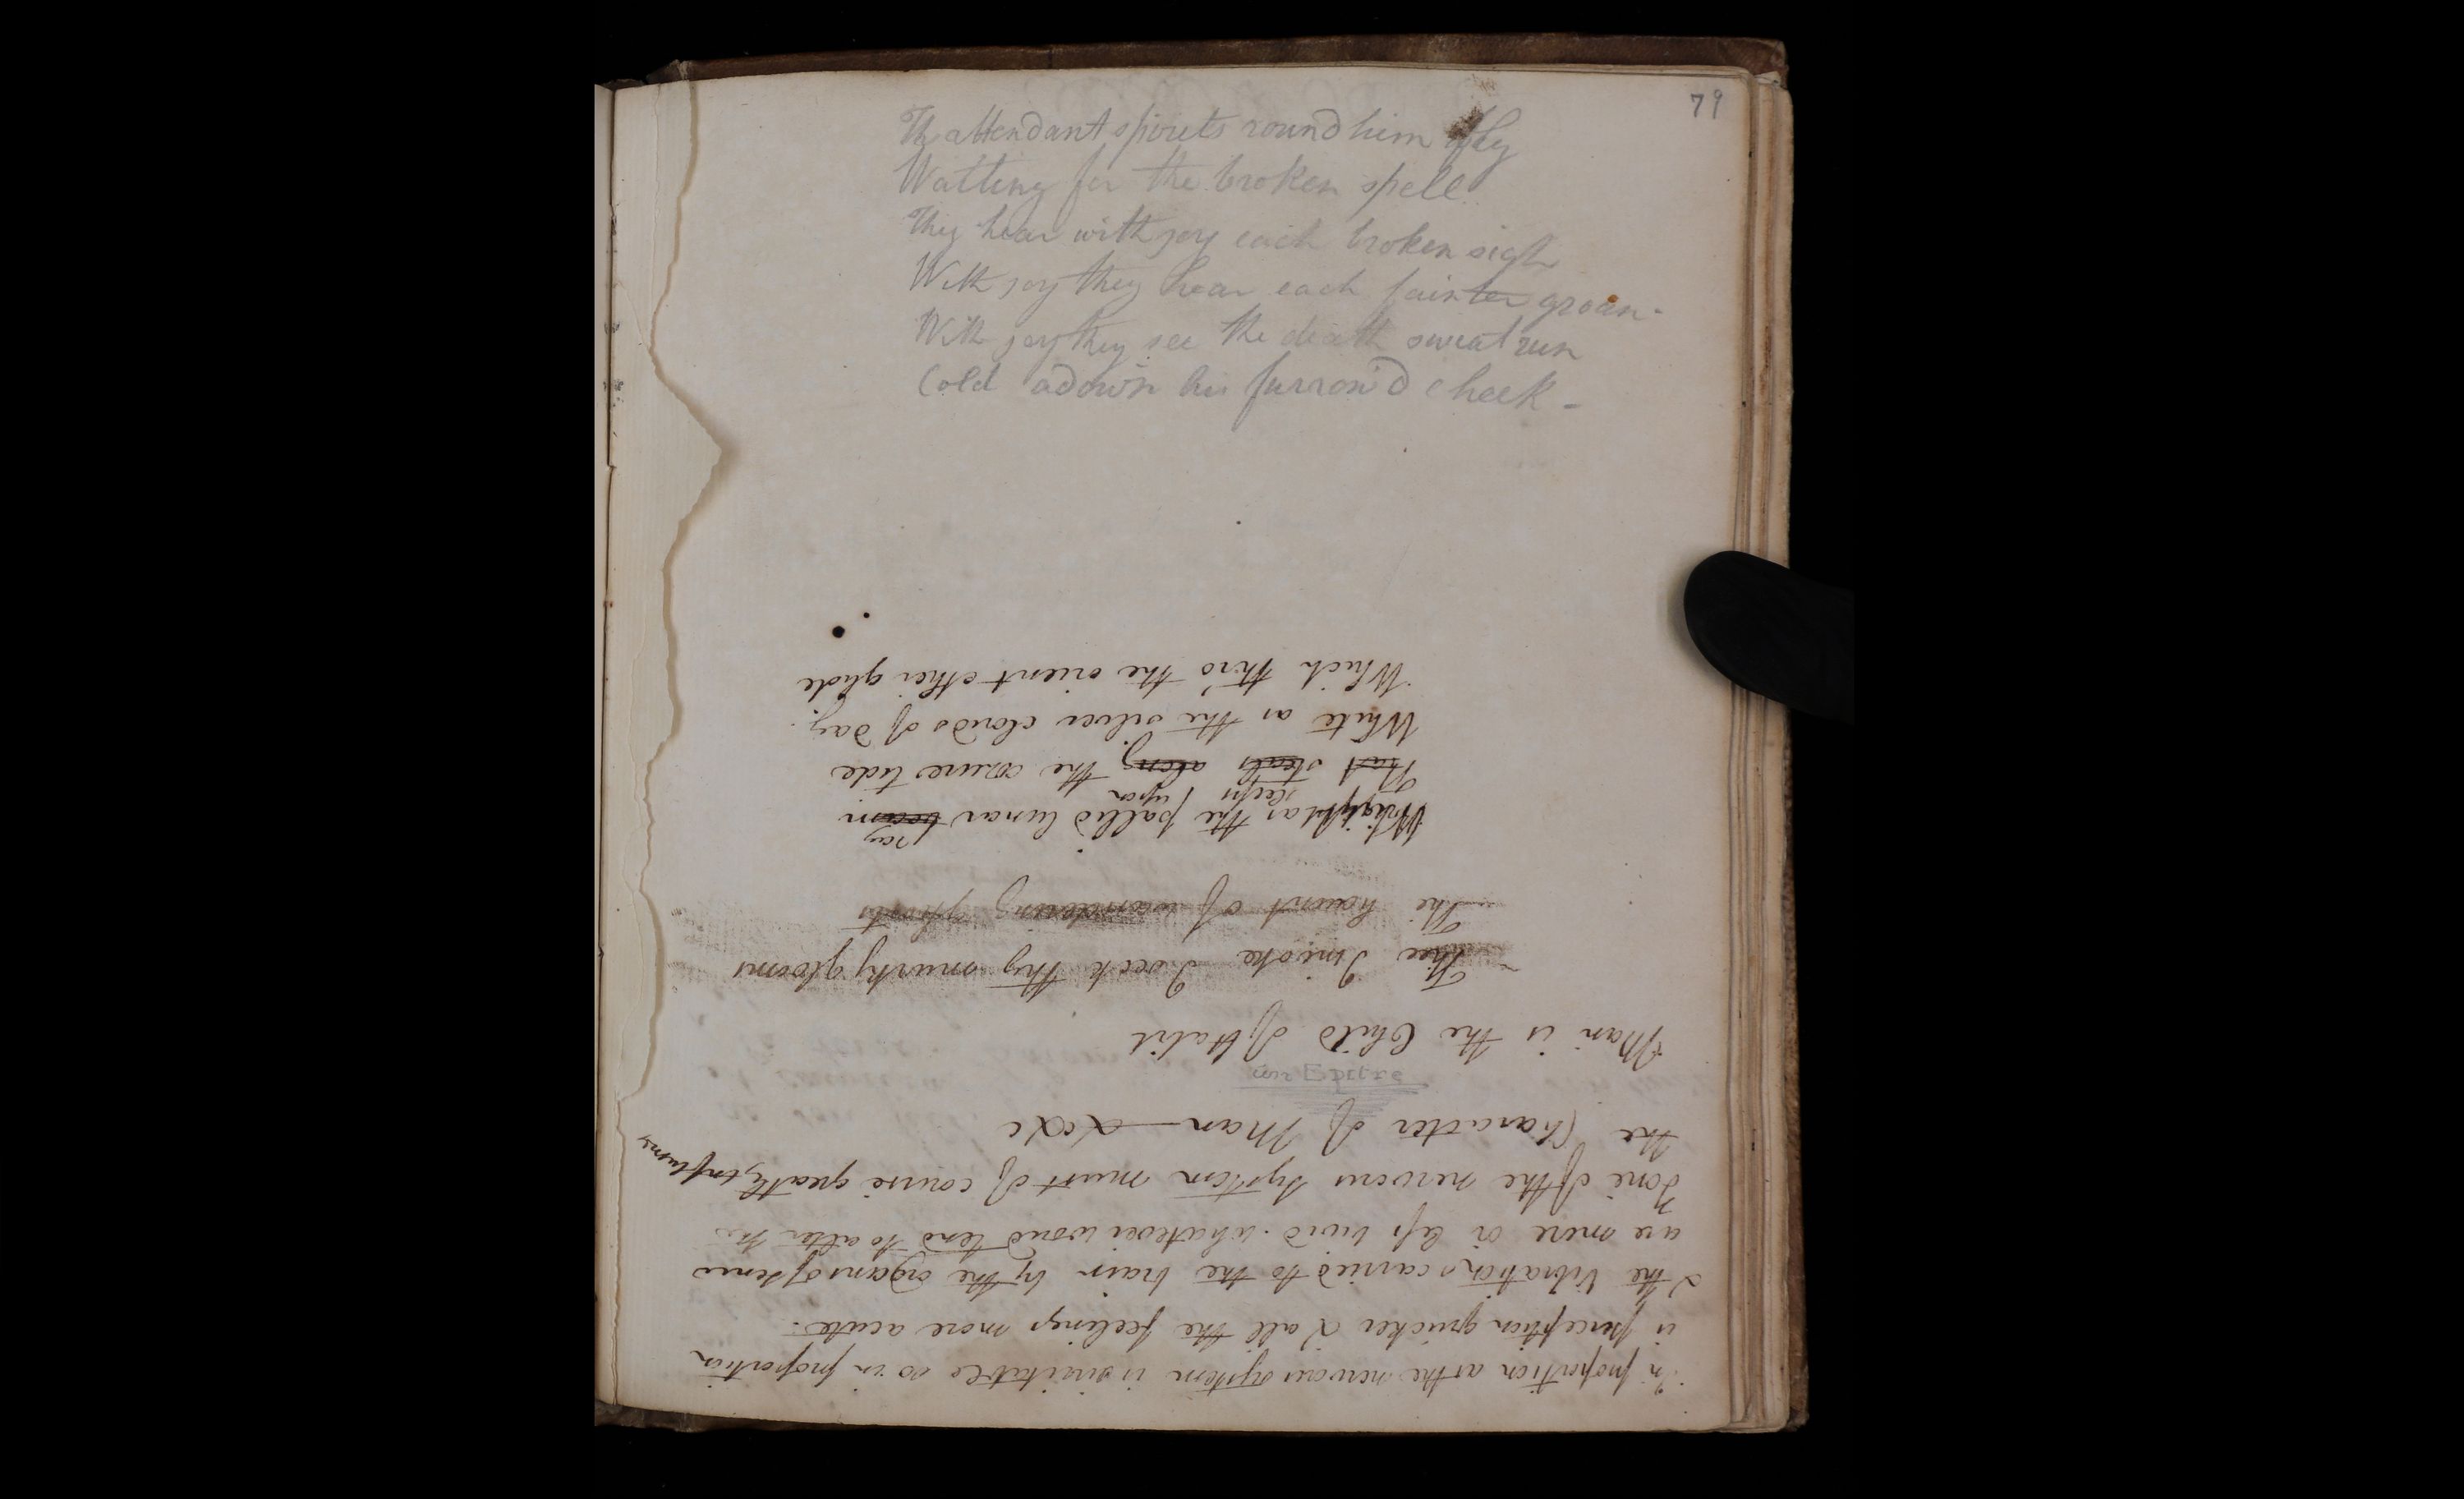 79
The attendant spirits round him fly
Waiting for the broken spell
They hear with joy each broken sigh
With joy they hear each fainter groan -
With joy they see the death sweat run
Cold adown his furrow'd cheek -
In proportion as the nervous system is irritable so in proportion
is perception quicker & all the feelings more acute.
& the vibrations carried to the brain by the organs of sense
are more or less vivid. whatever would tend to alter the
Tone of the nervous system must of course greatly influence
the Character of Man — &c &c
Man is the Child of Habit
Thee I invoke I seek thy murky glooms
The haunt of wandering ghosts
ray
Bright as the pallid lunar beam
sleeps upon
That steals along the azure tide
White as the silver clouds of day.
Which thro the orient ether glide